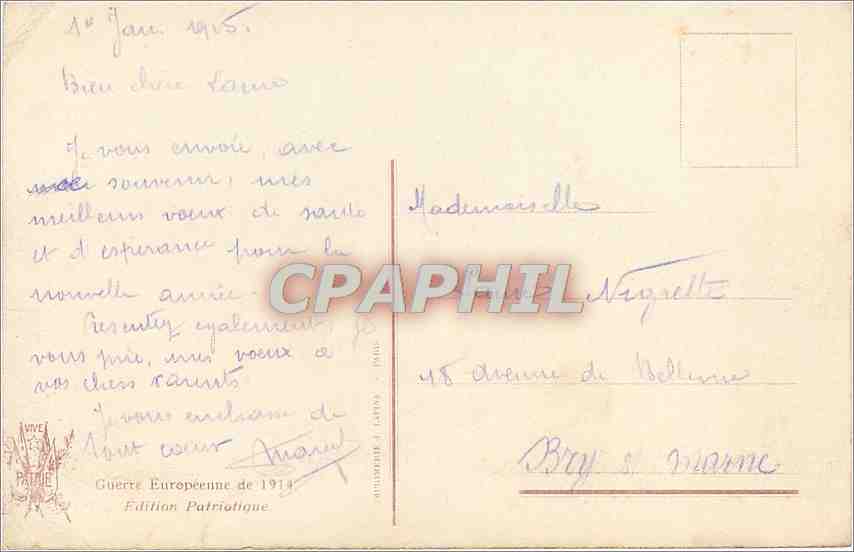 1er Jan. 1915.
Bien chère
Je vous envoie, avec
souvenir, mes
meilleurs voeux de santé
et d'espérance pour la
nouvelle année.
Présentez également, je
vous prie, mes voeux à
vos chers parents.
Je vous embrasse de
tout coeur
VIVE
LA
PATRIE
Guerre Européenne de 1914
Edition Patriotique
IMPRIMERIE I. LAPINA - PARIS
CPAPHIL
Mademoiselle
Nigrette
48 avenue de Bellevue
Bry s/ Marne